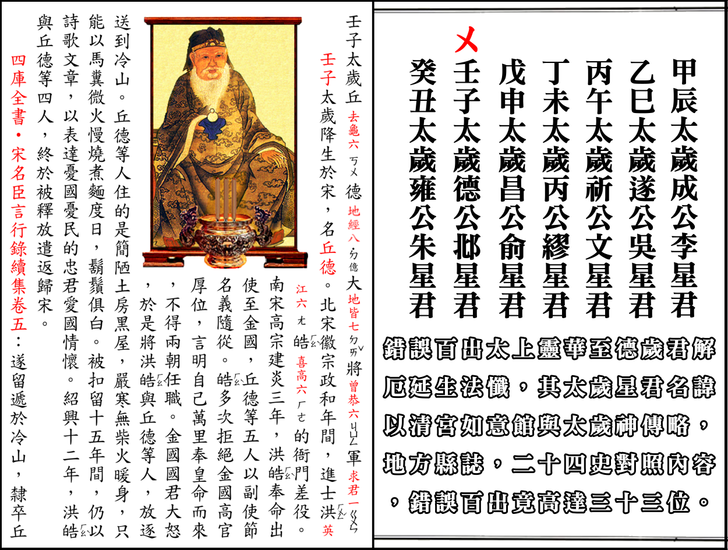 ㄨ
甲辰太歲成公李星君
乙巳太歲遂公吳星君
丙午太歲祈公文星君
丁未太歲丙公繆星君
戊申太歲昌公俞星君
壬子太歲德公邶星君
癸丑太歲雍公朱星君
錯誤百出太上靈華至德歲君解
厄延生法懺，其太歲星君名諱
以清宮如意館與太歲神傳略，
地方縣誌，二十四史對照內容
，錯誤百出竟高達三十三位。
壬子太歲丘去龜六ㄎㄨ德地經八ㄉ億大地皆七ㄉㄞˇ將曾恭六ㄐㄩㄥ軍求君一
壬子太歲降生於宋，名丘德。北宋徽宗政和年間，進士洪英
江六ㄤ皓喜高六ㄏㄜ的衙門差役。
南宋高宗建炎三年，洪皓奉命出
使至金國，丘德等五人以副使節
名義隨從。皓多次拒絕金國高官
厚位，言明自己萬里奉皇命而來
，不得兩朝任職。金國國君大怒
，於是將洪皓與丘德等人，放逐
送到冷山。丘德等人住的是簡陋土房黑屋，嚴寒無柴火暖身，只
能以馬糞微火慢燒煮麵度日，鬍鬚俱白。被扣留十五年間，仍以
詩歌文章，以表達憂國憂民的忠君愛國情懷。紹興十二年，洪皓
與丘德等四人，終於被釋放遣返歸宋。
四庫全書・宋名臣言行錄續集卷五：遂留遞於冷山，隸卒丘